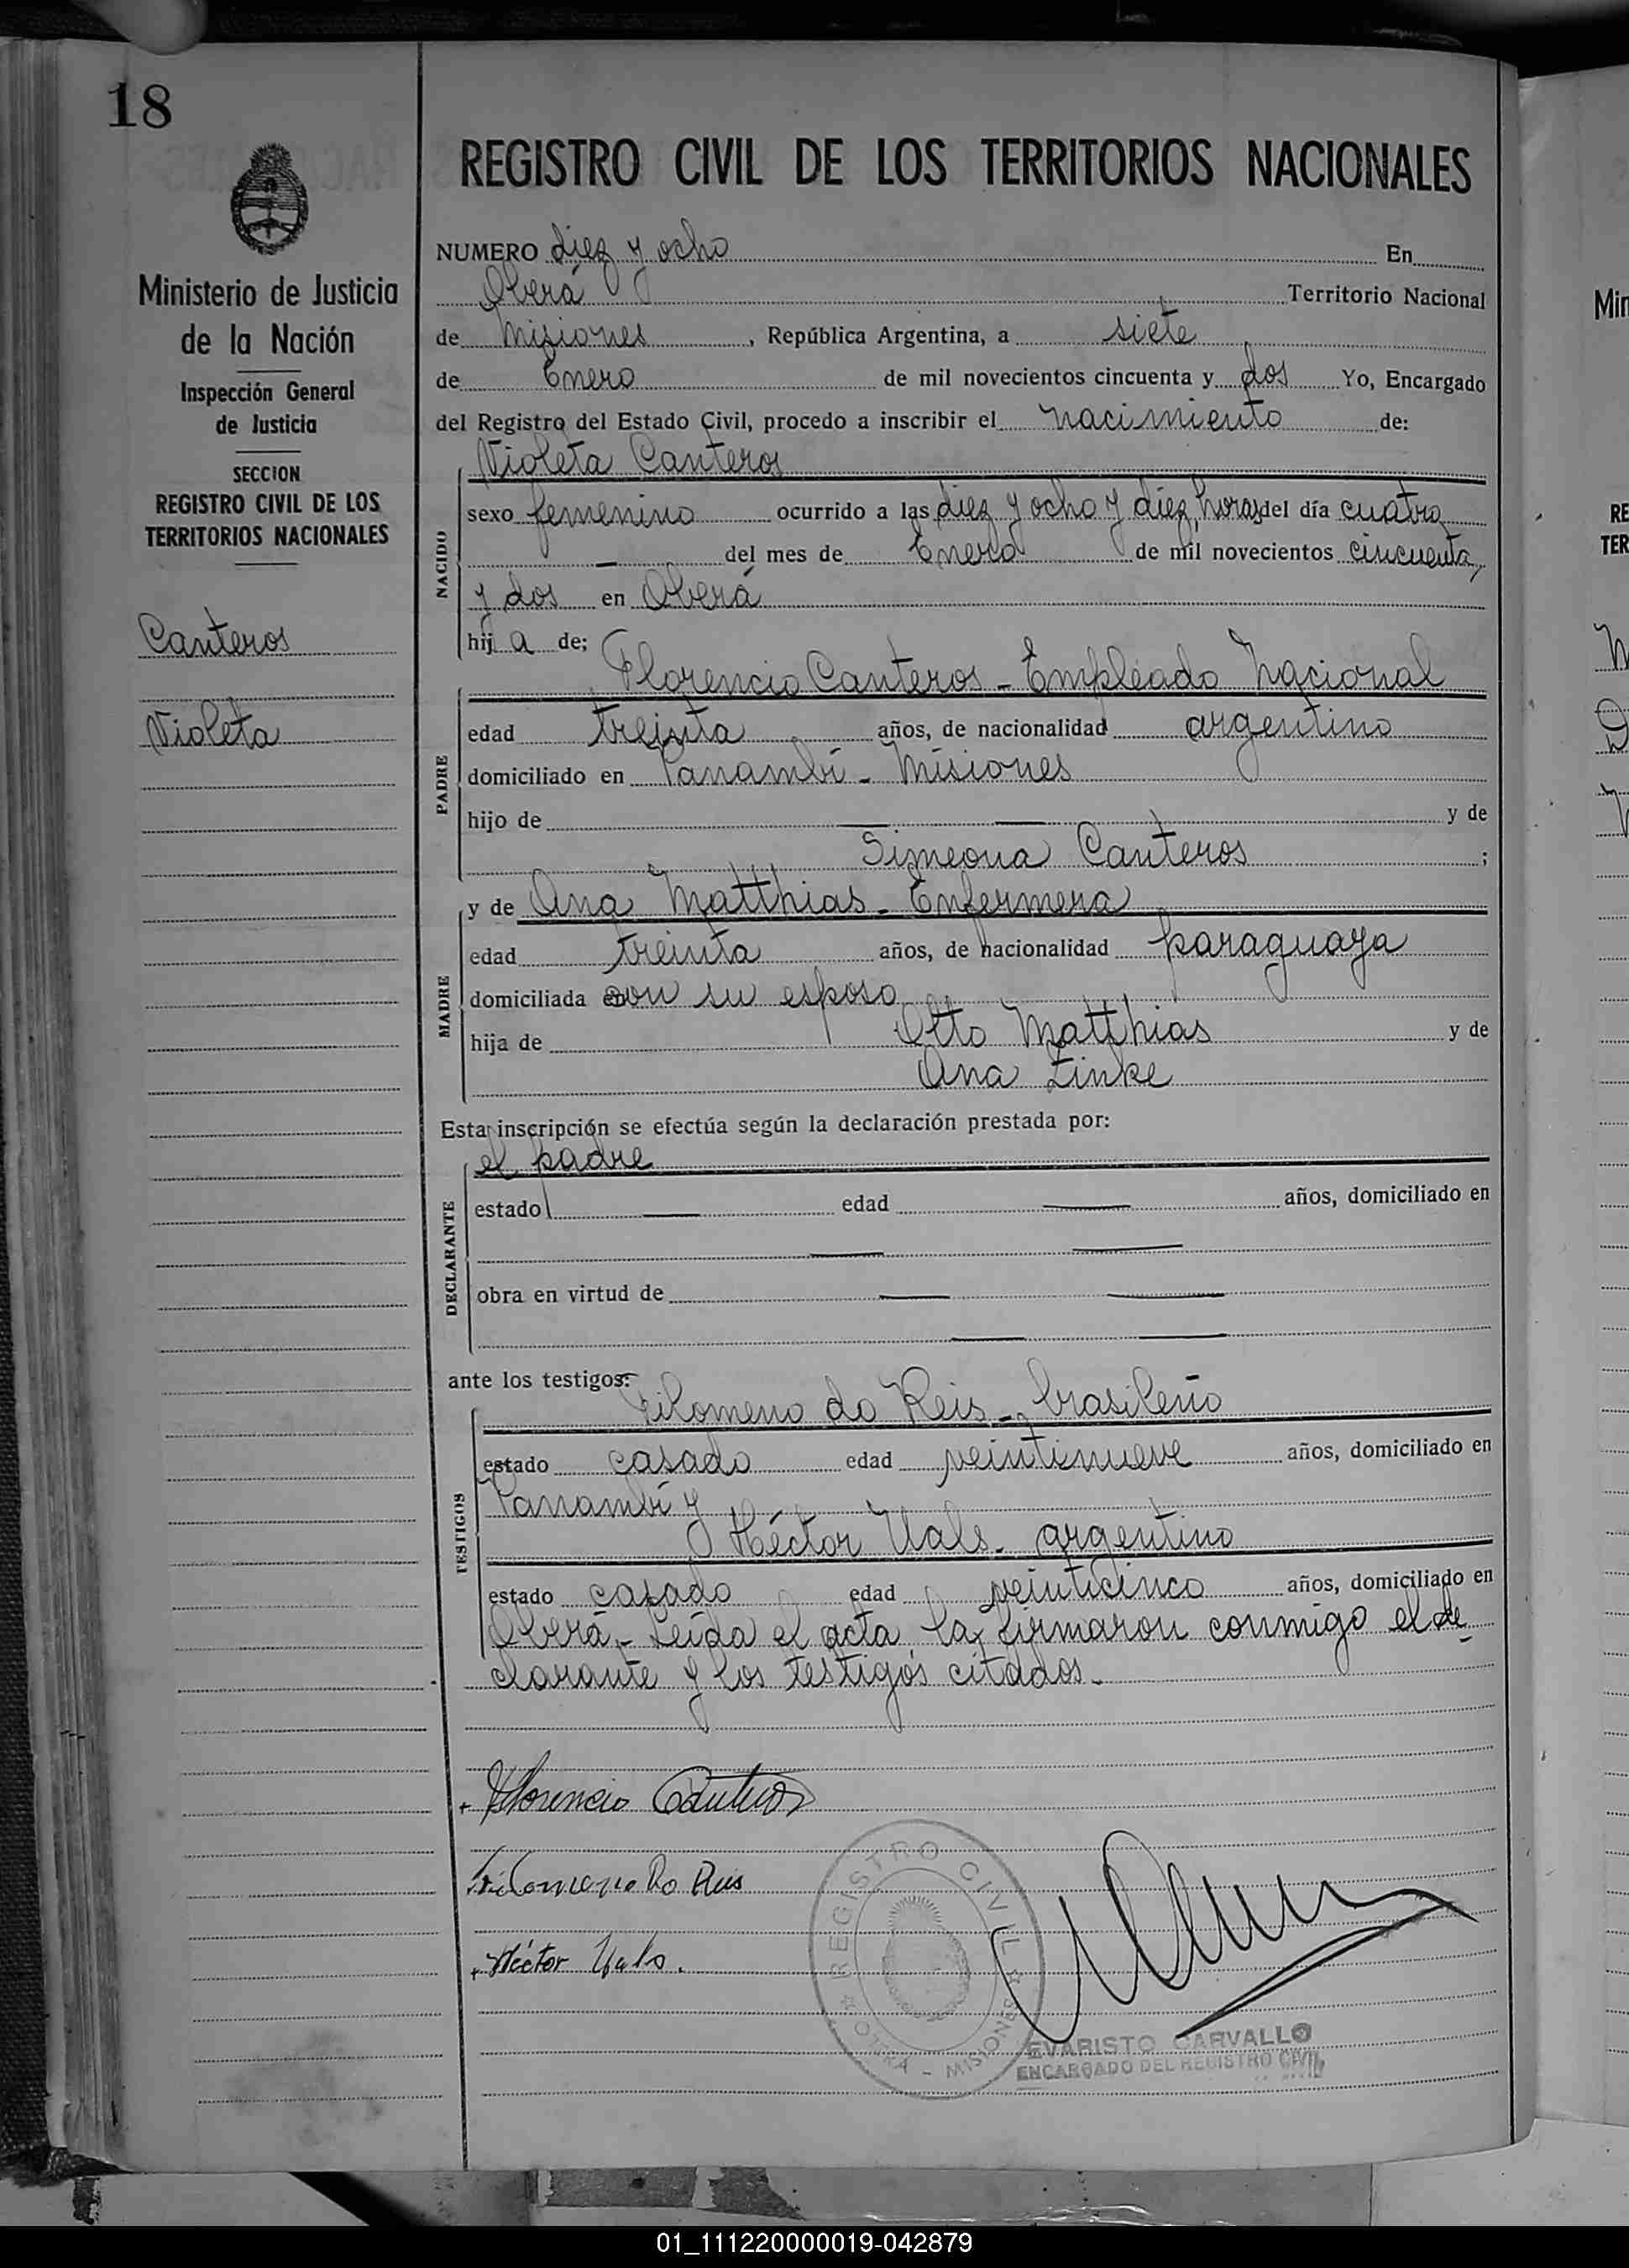 18
Ministerio de Justicia
de la Nación
Inspección General
de Justicia
SECCION
REGISTRO CIVIL DE LOS
TERRITORIOS NACIONALES
Canteros
Violeta
REGISTRO CIVIL DE LOS TERRITORIOS NACIONALES
NUMERO diez y ocho En
Oberá Territorio Nacional
de Misiones, República Argentina, a siete
de Enero de mil novecientos cincuenta y dos Yo, Encargado
del Registro del Estado Civil, procedo a inscribir el nacimiento de:
Violeta Canteros
NACIDO
sexo femenino ocurrido a las diez y ocho y diez horas del día cuatro
— del mes de Enero de mil novecientos cincuenta
y dos en Oberá
hija de;
Florencio Canteros - Empleado Nacional
PADRE
edad treinta años, de nacionalidad argentino
domiciliado en Panambí - Misiones
hijo de — — y de
Simeona Canteros ;
y de Ana Matthias - Enfermera
MADRE
edad treinta años, de nacionalidad paraguaya
domiciliada en con su esposo
hija de Otto Matthias y de
Ana Linke
Esta inscripción se efectúa según la declaración prestada por:
el padre
DECLARANTE
estado — edad — años, domiciliado en
— —
obra en virtud de — —
— —
ante los testigos:
Filomeno do Reis - brasileño
TESTIGOS
estado casado edad veintinueve años, domiciliado en
Panambí y
Héctor Uals - argentino
estado casado edad veinticinco años, domiciliado en
Oberá - Leída el acta la firmaron conmigo el de
clarante y los testigos citados.-
Florencio Canteros
Filomeno Do Reis
Héctor Uals.
REGISTRO CIVIL
OBERÁ - MISIONES
EVARISTO CARVALLO
ENCARGADO DEL REGISTRO CIVIL
Min
RE
TER
01_111220000019-042879